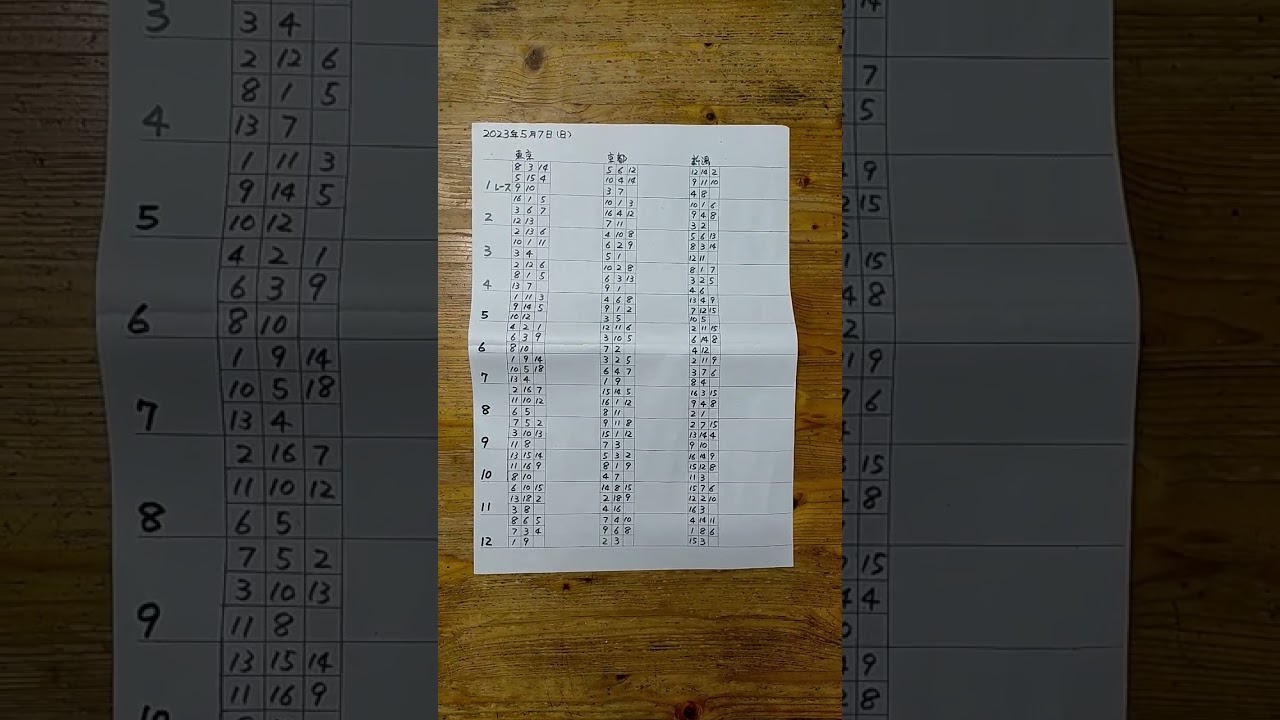 2023年5月7日(日)
東京 京都 新潟
8 3 14 5 6 12 12 14 2
5 15 4 10 4 14 9 11 10
1レース 9 10 3 7 4 8
16 1 5 10 1 3 10 1 6
3 6 7 16 4 12 9 4 8
2 12 13 7 11 3 2
2 13 6 4 10 8 5 6 13
10 1 11 6 2 9 8 3 14
3 3 4 5 1 12 11
2 12 6 10 2 8 8 1 7
8 1 5 6 3 13 3 2 5
4 13 7 9 1 4 6
1 11 3 4 6 8 13 4 9
9 14 5 9 1 2 7 12 15
5 10 12 3 5 10 5
4 2 1 12 11 6 2 11 15
6 3 9 3 10 5 6 14 8
6 8 10 7 2 4 12
1 9 14 3 2 5 2 11 9
10 5 18 6 4 7 3 7 6
7 13 4 1 9 8 4
2 16 7 15 14 5 16 3 15
11 10 12 16 1 12 9 4 8
8 6 5 8 11 2 1
7 5 2 9 11 8 2 7 15
3 10 13 15 1 12 13 14 4
9 11 8 7 3 9 10
13 15 14 5 3 2 16 14 9
11 16 9 8 1 9 15 12 8
10 8 10 4 7 11 3
6 10 15 14 8 15 15 7 6
13 18 2 2 18 9 12 2 10
11 3 8 4 16 16 3
8 6 5 7 4 10 4 14 11
7 3 4 9 6 8 1 8 6
12 1 9 2 3 15 3